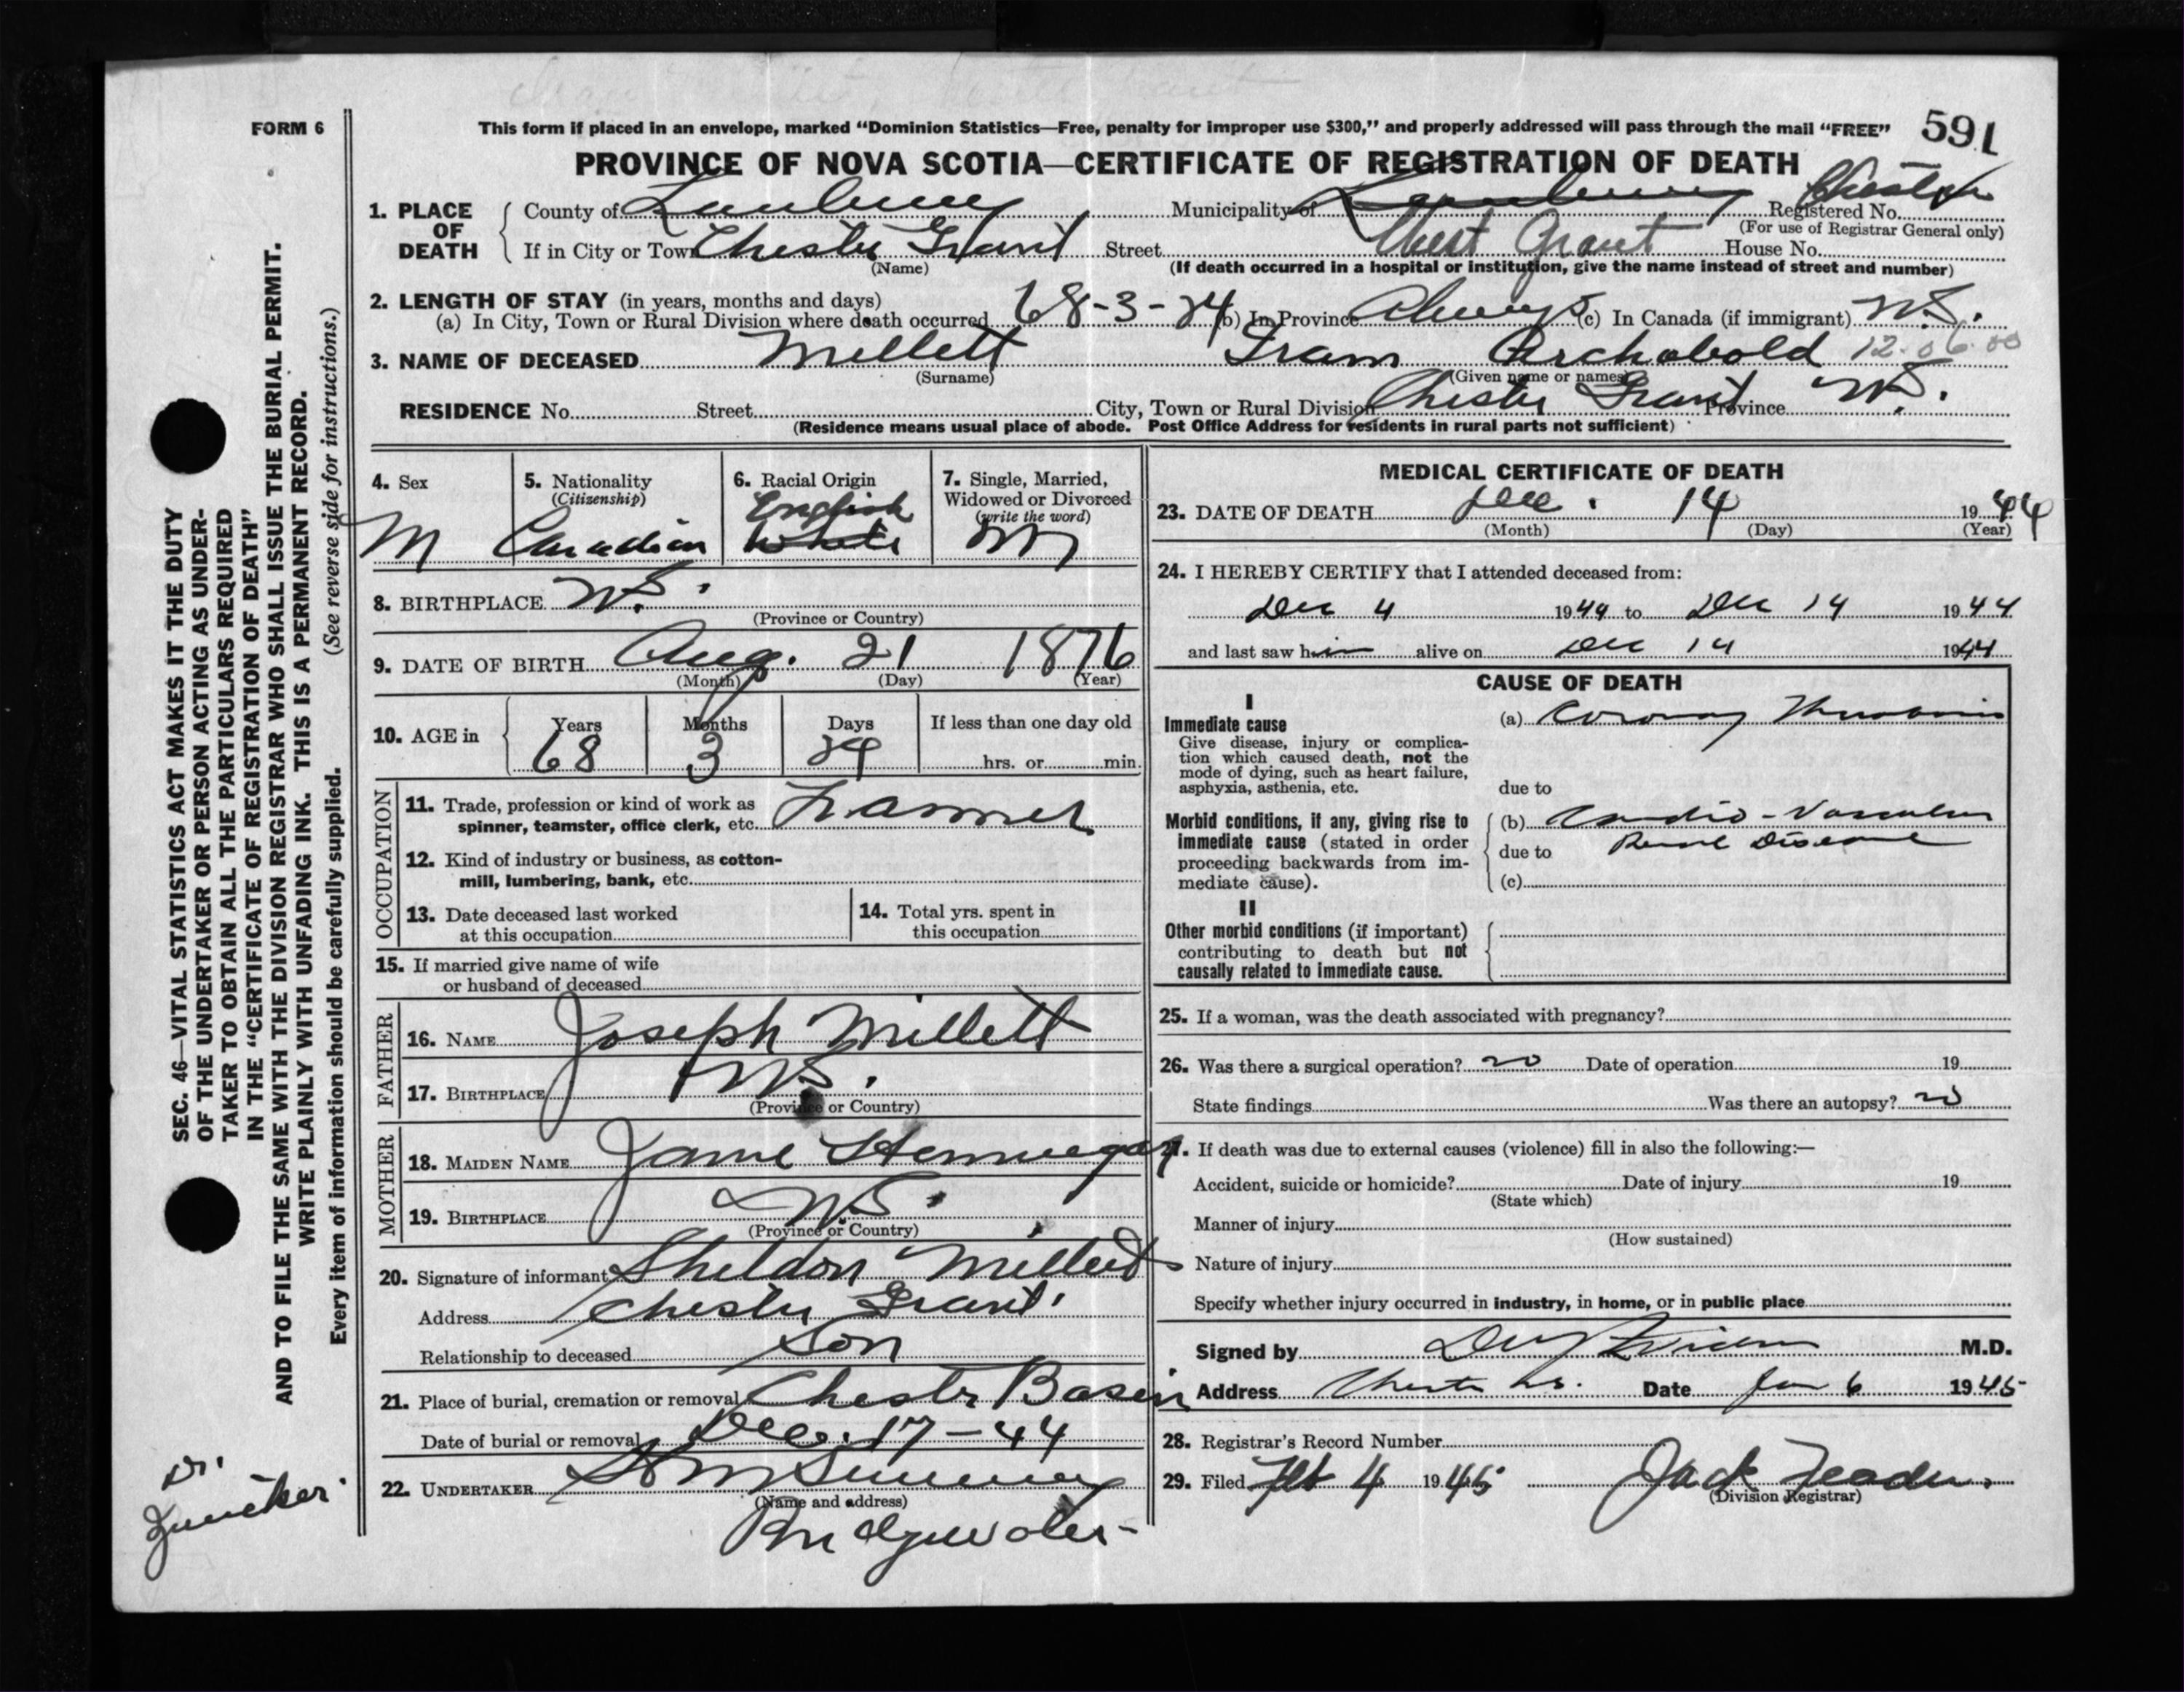 FORM 6
This form if placed in an envelope, marked “Dominion Statistics—Free, penalty for improper use $300,” and properly addressed will pass through the mail “FREE”
591
PROVINCE OF NOVA SCOTIA—CERTIFICATE OF REGISTRATION OF DEATH
1. PLACE OF DEATH
County of Lunburg Municipality of Lunenburg Chester Registered No.
(For use of Registrar General only)
If in City or Town Chester Grant Street West Grant House No.
(Name)
(If death occurred in a hospital or institution, give the name instead of street and number)
2. LENGTH OF STAY (in years, months and days)
(a) In City, Town or Rural Division where death occurred 68-3-24 (b) In Province Always (c) In Canada (if immigrant) N.S.
3. NAME OF DECEASED Millett Archobold 12.06.00
(Surname) (Given name or names)
RESIDENCE No. Street City, Town or Rural Division Chester Grant Province N.S.
(Residence means usual place of abode. Post Office Address for residents in rural parts not sufficient)
4. Sex
M
5. Nationality
(Citizenship)
Canadian
6. Racial Origin
English
White
7. Single, Married,
Widowed or Divorced
(write the word)
M
8. BIRTHPLACE N.S.
(Province or Country)
9. DATE OF BIRTH Aug. 21 1876
(Month) (Day) (Year)
10. AGE in
Years Months Days If less than one day old
68 3 24 hrs. or min.
OCCUPATION
11. Trade, profession or kind of work as
spinner, teamster, office clerk, etc. Farmer
12. Kind of industry or business, as cotton-
mill, lumbering, bank, etc.
13. Date deceased last worked
at this occupation
14. Total yrs. spent in
this occupation
15. If married give name of wife
or husband of deceased
FATHER
16. NAME Joseph Millett
17. BIRTHPLACE N.S.
(Province or Country)
MOTHER
18. MAIDEN NAME Jane
19. BIRTHPLACE N.S.
(Province or Country)
20. Signature of informant Sheldon Millett
Address Chester Grant.
Relationship to deceased Son
21. Place of burial, cremation or removal Chester Basin
Date of burial or removal Dec. 17-44
22. UNDERTAKER
(Name and address)
Bridgewater-
MEDICAL CERTIFICATE OF DEATH
23. DATE OF DEATH Dec. 14 1944
(Month) (Day) (Year)
24. I HEREBY CERTIFY that I attended deceased from:
Dec 4 1944 to Dec 14 1944
and last saw him alive on Dec 14 1944
CAUSE OF DEATH
I
Immediate cause
Give disease, injury or complica-
tion which caused death, not the
mode of dying, such as heart failure,
asphyxia, asthenia, etc.
(a) Coronary Thrombosis
due to
Morbid conditions, if any, giving rise to
immediate cause (stated in order
proceeding backwards from im-
mediate cause).
(b) Cardio-Vascular
due to Renal Disease
(c)
II
Other morbid conditions (if important)
contributing to death but not
causally related to immediate cause.
25. If a woman, was the death associated with pregnancy?
26. Was there a surgical operation? no Date of operation 19
State findings Was there an autopsy? no
27. If death was due to external causes (violence) fill in also the following:—
Accident, suicide or homicide? Date of injury 19
(State which)
Manner of injury
(How sustained)
Nature of injury
Specify whether injury occurred in industry, in home, or in public place
Signed by M.D.
Address Chester N.S. Date Jan 6 1945
28. Registrar's Record Number
29. Filed Feb 4 1945 Jack
(Division Registrar)
SEC. 46—VITAL STATISTICS ACT MAKES IT THE DUTY
OF THE UNDERTAKER OR PERSON ACTING AS UNDER-
TAKER TO OBTAIN ALL THE PARTICULARS REQUIRED
IN THE “CERTIFICATE OF REGISTRATION OF DEATH”
AND TO FILE THE SAME WITH THE DIVISION REGISTRAR WHO SHALL ISSUE THE BURIAL PERMIT.
WRITE PLAINLY WITH UNFADING INK. THIS IS A PERMANENT RECORD.
Every item of information should be carefully supplied. (See reverse side for instructions.)
Dr.
Zwicker